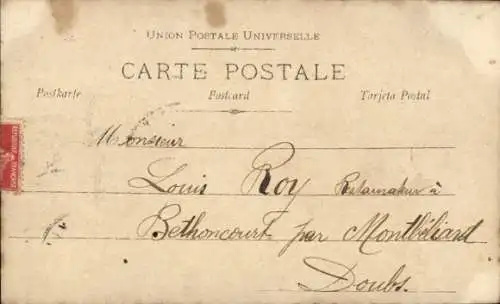 UNION POSTALE UNIVERSELLE
CARTE POSTALE
Postkarte Postcard Tarjeta Postal
Monsieur
Louis Roy à
Bethoncourt par Montbéliard
Doubs.